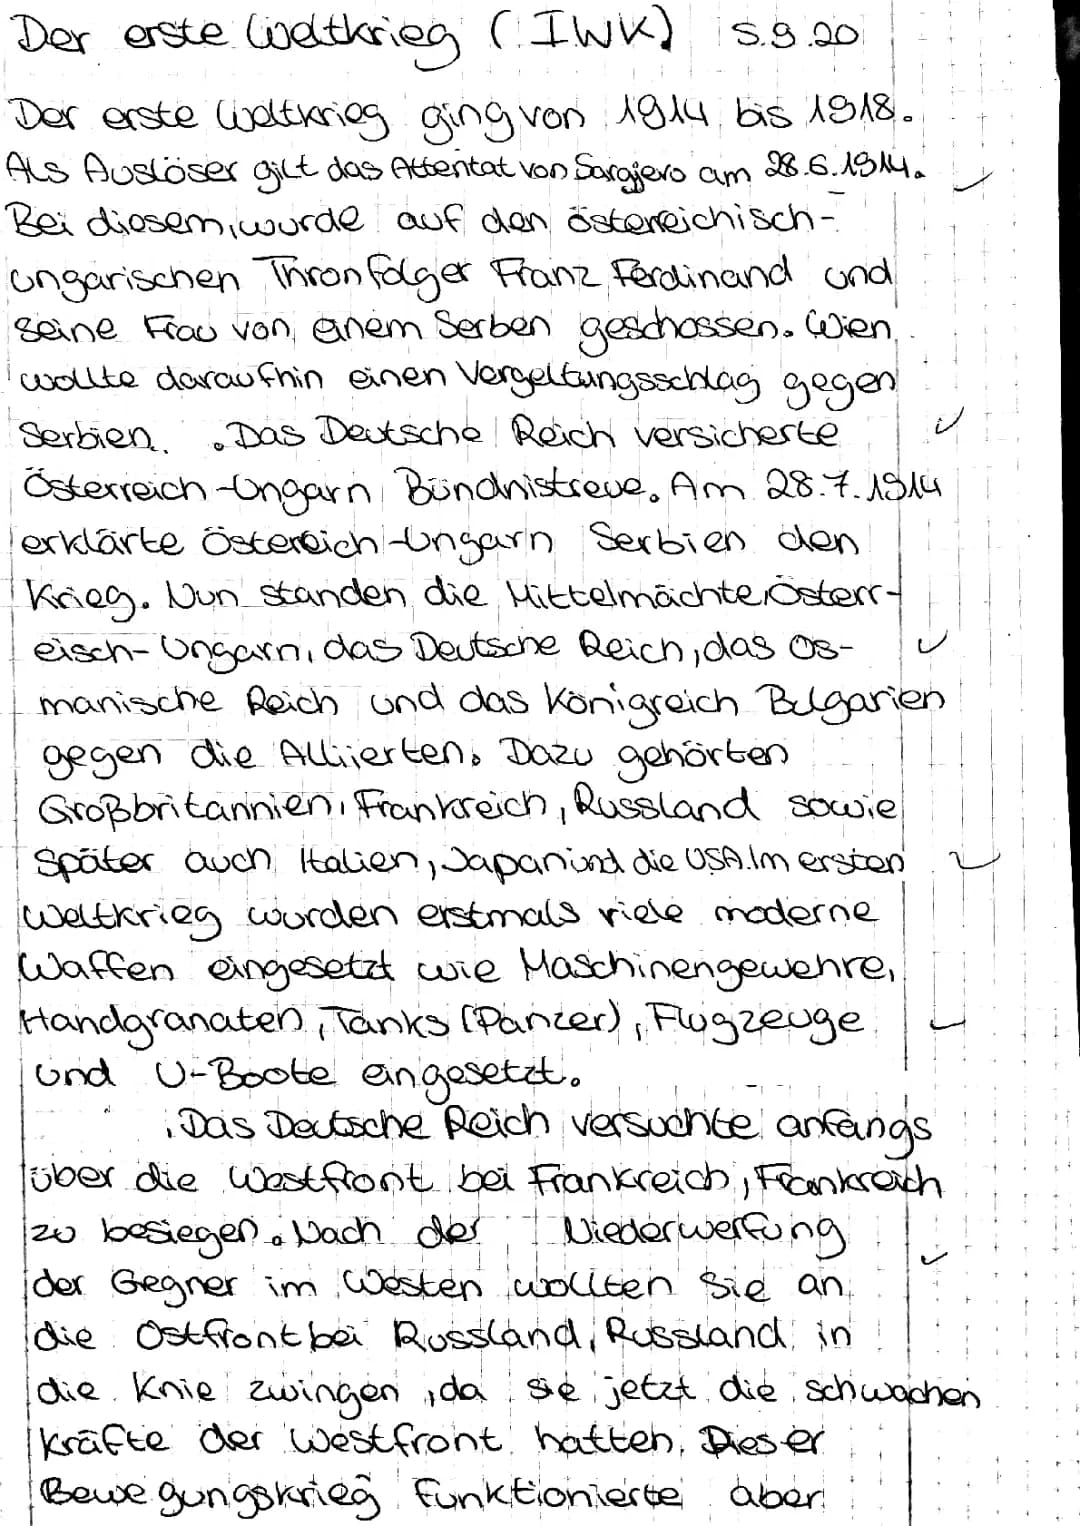 Der erste Weltkrieg (IWK) 5.9.20
Der erste Weltkrieg ging von 1914 bis 1918.
Als Auslöser gilt das Attentat von Sarajevo am 28.6.1914.
Bei diesem, wurde auf den östereichisch-
ungarischen Thronfolger Franz Ferdinand und
seine Frau von einem Serben geschossen. Wien
wollte daraufhin einen Vergeltungsschlag gegen
Serbien. Das Deutsche Reich versicherte
Österreich-Ungarn Bündnistreue. Am 28.7.1914
erklärte Östereich-Ungarn Serbien den
Krieg. Nun standen die Mittelmächte, Österr-
eisch-Ungarn, das Deutsche Reich, das Os-
manische Reich und das Königreich Bulgarien
gegen die Alliierten. Dazu gehörten
Großbritannien, Frankreich, Russland sowie
später auch Italien, Japan und die USA. Im ersten
Weltkrieg wurden erstmals viele moderne
Waffen eingesetzt wie Maschinengewehre,
Handgranaten, Tanks (Panzer), Flugzeuge
und U-Boote eingesetzt.
Das Deutsche Reich versuchte anfangs
über die Westfront bei Frankreich, Frankreich
zu besiegen. Nach der Niederwerfung
der Gegner im Westen wollten sie an
die Ostfront bei Russland, Russland in
die Knie zwingen, da sie jetzt die schwachen
kräfte der Westfront hatten. Dieser
Bewegungskrieg funktionierte aber